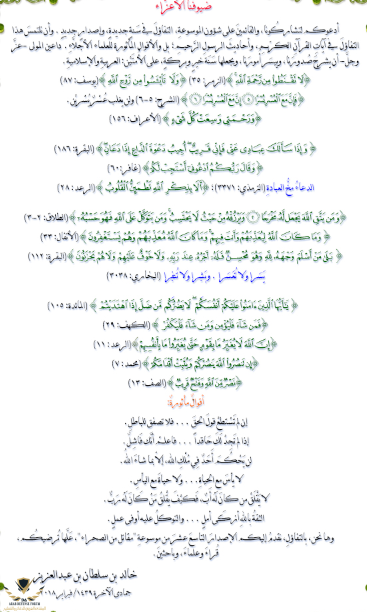 ضيوفنا الأعزاء
أدعوكم لتشاركونا، والقائمين على شؤون الموسوعة، التفاؤل في سنة جديدة، وإصدار جديد. وأن نلتمس هذا
التفاؤل في آيات القرآن الكريم، وأحاديث الرسول الرحيم؛ بل والأقوال المأثورة للعلماء الأجلاء. داعين المولى - عز
وجل - أن يشرح صدورنا، وييسر أمورنا، ويجعلها سنة خير وبركة، على الأمتين: العربية والإسلامية.
﴿لَا تَقْنَطُوا مِن رَّحْمَةِ اللَّهِ﴾ (الزمر: ٥٣) ﴿وَلَا تَيْأَسُوا مِن رَّوْحِ اللَّهِ﴾ (يوسف: ٨٧)
﴿فَإِنَّ مَعَ الْعُسْرِ يُسْرًا ۝ إِنَّ مَعَ الْعُسْرِ يُسْرًا﴾ (الشرح: ٥-٦) ولن يغلب عُسْرٌ يُسْرَيْن.
﴿وَرَحْمَتِي وَسِعَتْ كُلَّ شَيْءٍ﴾ (الأعراف: ١٥٦)
﴿وَإِذَا سَأَلَكَ عِبَادِي عَنِّي فَإِنِّي قَرِيبٌ أُجِيبُ دَعْوَةَ الدَّاعِ إِذَا دَعَانِ﴾ (البقرة: ١٨٦)
﴿وَقَالَ رَبُّكُمُ ادْعُونِي أَسْتَجِبْ لَكُمْ﴾ (غافر: ٦٠)
الدعاءُ مخُّ العبادة (الترمذي: ٣٣٧١)؛ ﴿أَلَا بِذِكْرِ اللَّهِ تَطْمَئِنُّ الْقُلُوبُ﴾ (الرعد: ٢٨)
﴿وَمَن يَتَّقِ اللَّهَ يَجْعَل لَّهُ مَخْرَجًا ۝ وَيَرْزُقْهُ مِنْ حَيْثُ لَا يَحْتَسِبُ وَمَن يَتَوَكَّلْ عَلَى اللَّهِ فَهُوَ حَسْبُهُ﴾ (الطلاق: ٢-٣)
﴿وَمَا كَانَ اللَّهُ لِيُعَذِّبَهُمْ وَأَنتَ فِيهِمْ وَمَا كَانَ اللَّهُ مُعَذِّبَهُمْ وَهُمْ يَسْتَغْفِرُونَ﴾ (الأنفال: ٣٣)
﴿بَلَى مَنْ أَسْلَمَ وَجْهَهُ لِلَّهِ وَهُوَ مُحْسِنٌ فَلَهُ أَجْرُهُ عِندَ رَبِّهِ وَلَا خَوْفٌ عَلَيْهِمْ وَلَا هُمْ يَحْزَنُونَ﴾ (البقرة: ١١٢)
يَسِّرا ولا تُعَسِّرا، وبَشِّرا ولا تُنَفِّرا (البخاري: ٣٠٣٨)
﴿يَا أَيُّهَا الَّذِينَ آمَنُوا عَلَيْكُمْ أَنفُسَكُمْ لَا يَضُرُّكُم مَّن ضَلَّ إِذَا اهْتَدَيْتُمْ﴾ (المائدة: ١٠٥)
﴿فَمَن شَاءَ فَلْيُؤْمِن وَمَن شَاءَ فَلْيَكْفُرْ﴾ (الكهف: ٢٩)
﴿إِنَّ اللَّهَ لَا يُغَيِّرُ مَا بِقَوْمٍ حَتَّى يُغَيِّرُوا مَا بِأَنفُسِهِمْ﴾ (الرعد: ١١)
﴿إِن تَنصُرُوا اللَّهَ يَنصُرْكُمْ وَيُثَبِّتْ أَقْدَامَكُمْ﴾ (محمد: ٧)
﴿نَصْرٌ مِّنَ اللَّهِ وَفَتْحٌ قَرِيبٌ﴾ (الصف: ١٣)
أقوالٌ مأثورة:
إن لم تستطع قول الحق ... فلا تصفق للباطل.
إذا لم تجد لك حاقداً ... فاعلم أنك فاشل.
لن يحكم أحد في مُلك الله، إلا بما شاء الله.
لا يأس مع الحياة... ولا حياة مع اليأس.
لا يَقْلَقُ من كان له أب، فكيف يقلق من كان له رب.
الثقة بالله أزكى أمل ... والتوكل عليه أوفى عمل.
وها نحن، بالتفاؤل، نقدم إليكم الإصدار التاسع عشر من موسوعة "مقاتل من الصحراء"، علّها ترضيكم،
قراءً وعلماءً، وباحثين.
خالد بن سلطان بن عبدالعزيز
جمادى الآخرة ١٤٣٩/ فبراير ٢٠١٨